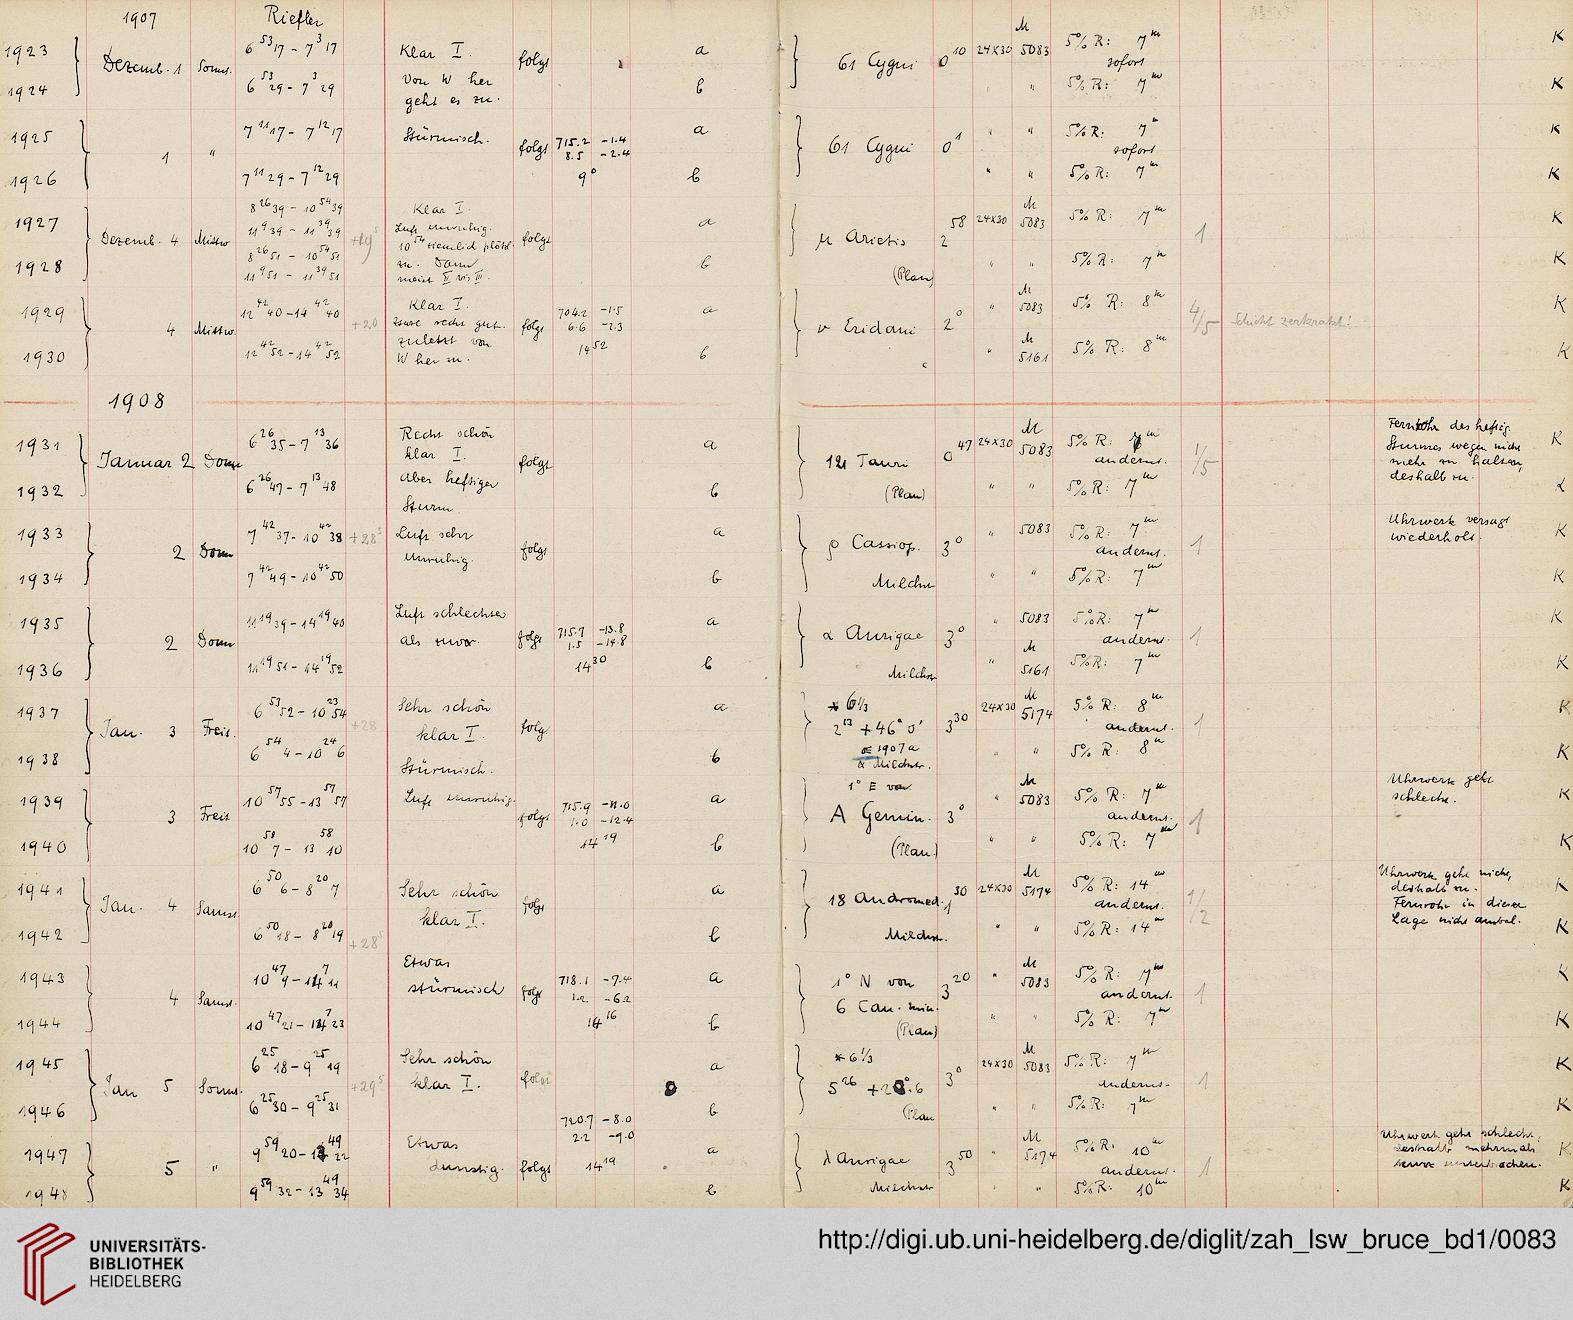 1907 Riefler
1923 Dezemb. 1 Sonnt. 6 53 17 - 7 3 17 Klar I. folgt a 61 Cygni 0 10 24x30 M 5083 5% R: 7m sofort K
1924 6 53 29 - 7 3 29 Von W her geht es zu. b " " 5% R: 7m K
1925 1 " 7 11 17 - 7 12 17 Stürmisch. folgt 715.2 -1.4 a 61 Cygni 0 1 " " 5% R: 7m sofort K
8.5 -2.4
1926 7 11 29 - 7 12 29 9 0 b " " 5% R: 7m K
1927 Dezemb. 4 Mittw 8 26 39 - 10 54 39 Klar I. folgt a μ Arietis 2 58 24x30 M 5083 5% R: 7m 1 K
11 9 39 - 11 39 39 Luft unruhig.
1928 8 26 51 - 10 54 51 10 54 ziemlich plötzl. b (Plan) " " 5% R: 7m K
11 9 51 - 11 39 51 zu. Dann meist II bis III.
1929 4 Mittw. 12 42 40 - 14 42 40 +20 Klar I. folgt 704.2 -1.5 a ν Eridani 2 0 " M 5083 5% R: 8m 4/5 Schicht zerkratzt! K
recht gut. 6.6 -2.3
1930 12 42 52 - 14 42 52 zuletzt von W her zu. 14 52 b " M 5161 5% R: 8m K
1908
1931 Januar 2 Donn 6 26 35 - 7 13 36 Recht schön klar I. folgt a 121 Tauri 0 47 24x30 M 5083 5% R: 7m anderns. 1/5 Fernrohr des heftig. Sturmes wegen nicht mehr zu halten, deshalb zu. K
1932 6 26 47 - 7 13 48 aber heftiger Sturm. b (Plan) " " 5% R: 7m K
1933 2 Donn 7 42 37 - 10 42 38 +28 5 Luft sehr unruhig. folgt a ρ Cassiop. 3 0 " 5083 5% R: 7m anderns. 1 Uhrwerk versagt wiederholt. K
1934 7 42 49 - 10 42 50 b Milchst " " 5% R: 7m K
1935 2 Donn 11 19 39 - 14 19 40 Luft schlechter als zuvor. folgt 715.7 -13.8 a α Aurigae 3 0 " 5083 5% R: 7m anderns. 1 K
1.5 -14.8
1936 11 19 51 - 14 19 52 14 30 b Milchstr " M 5161 5% R: 7m K
1937 Jan. 3 Freit. 6 53 52 - 10 23 54 +28 Sehr schön klar I. folgt. a * 6 1/3 2 13 +46° 0' 3 30 24x30 M 5174 5% R: 8m anderns. 1 K
1938 6 54 4 - 10 24 6 Stürmisch. b 1907a α Milchstr. " " 5% R: 8m K
1939 3 Freit 10 57 55 - 13 57 57 Luft unruhig. folgt 715.9 -11.0 a 1° E von A Gemin. 3 0 " M 5083 5% R: 7m anderns. 1 Uhrwerk geht schlecht. K
1.0 -12.4
1940 10 58 7 - 13 58 10 14 19 b (Plan.) " " 5% R: 7m K
1941 Jan. 4 Samst. 6 50 6 - 8 20 7 Sehr schön klar I. folgt a 18 Andromed. 1 30 24x30 M 5174 5% R: 14m anderns. 1/2 Uhrwerk geht nicht, deshalb zu. Fernrohr in dieser Lage nicht K
1942 6 50 18 - 8 20 19 +28 5 b Milchst. " " 5% R: 14m K
1943 4 Samst. 10 47 9 - 14 7 11 Etwas stürmisch folgt 718.1 -7.4 a 1° N von 6 Can. min. 3 20 " M 5083 5% R: 7m anderns. 1 K
1.2 -6.2
1944 10 47 21 - 14 7 23 14 16 b (Plan) " " 5% R: 7m K
1945 Jan 5 Sonnt. 6 25 18 - 9 25 19 +29 5 Sehr schön klar I. folgt a * 6 1/3 5 26 +28°.6 3 0 24x30 M 5083 5% R: 7m anderns. 1 K
1946 6 25 30 - 9 25 31 b (Plan " " 5% R: 7m K
720.7 -8.0
2.2 -9.0
1947 5 " 9 59 20 - 13 49 22 Etwas dunstig. folgt 14 19 a λ Aurigae 3 50 " M 5174 5% R: 10m anderns. 1 Uhrwerk geht schlecht, deshalb mehrmals kurz unterbrochen. K
1948 9 59 32 - 13 49 34 b Milchstr " " 5% R: 10m K
UNIVERSITÄTS-
BIBLIOTHEK
HEIDELBERG
http://digi.ub.uni-heidelberg.de/diglit/zah_lsw_bruce_bd1/0083